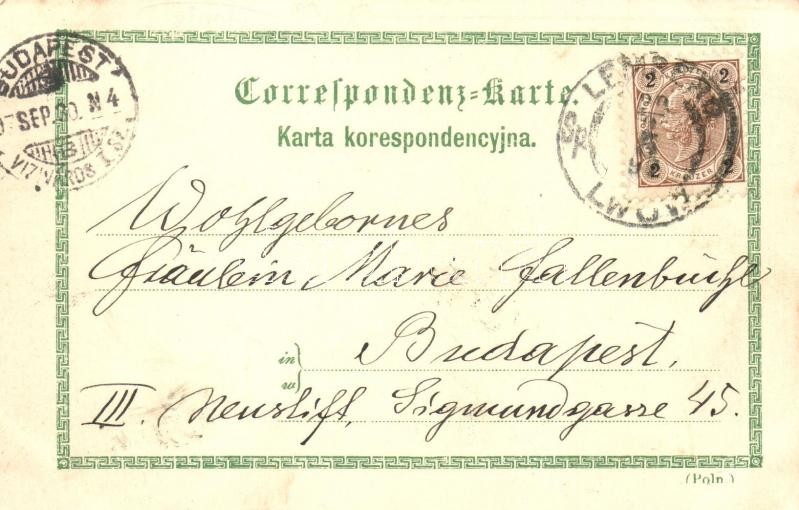 BUDAPEST
SEP. N4
VIZIVÁROS
Correspondenz-Karte.
Karta korespondencyjna.
LEMBERG
LWÓW
2 2
2 2
KREUZER
Wohlgebornes
Fräulein Marie Fallenbüchl
in
w
Budapest,
III. Neustift, Sigmundgasse 45.
(Poln.)